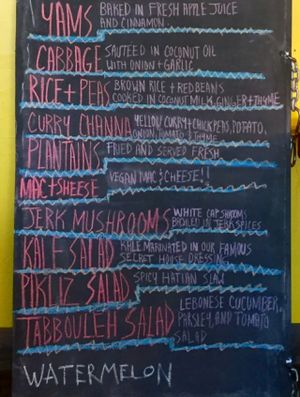 YAMS BAKED IN FRESH APPLE JUICE
AND CINNAMON
CABBAGE SAUTEED IN COCONUT OIL
WITH ONION + GARLIC
RICE + PEAS BROWN RICE + RED BEANS
COOKED IN COCONUT MILK, GINGER + THYME
CURRY CHANNA YELLOW CURRY + CHICKPEAS, POTATO,
ONION, TOMATO & THYME
PLANTAINS FRIED AND SERVED FRESH
MAC + SHEESE VEGAN MAC & CHEESE!!
JERK MUSHROOMS WHITE CAP SHROOMS
BROILED IN JERK SPICES
KALE SALAD KALE MARINATED IN OUR FAMOUS
SECRET HOUSE DRESSING
PIKLIZ SALAD SPICY HATIAN SLAW
TABBOULEH SALAD LEBONESE CUCUMBER,
PARSLEY, AND TOMATO
SALAD
WATERMELON